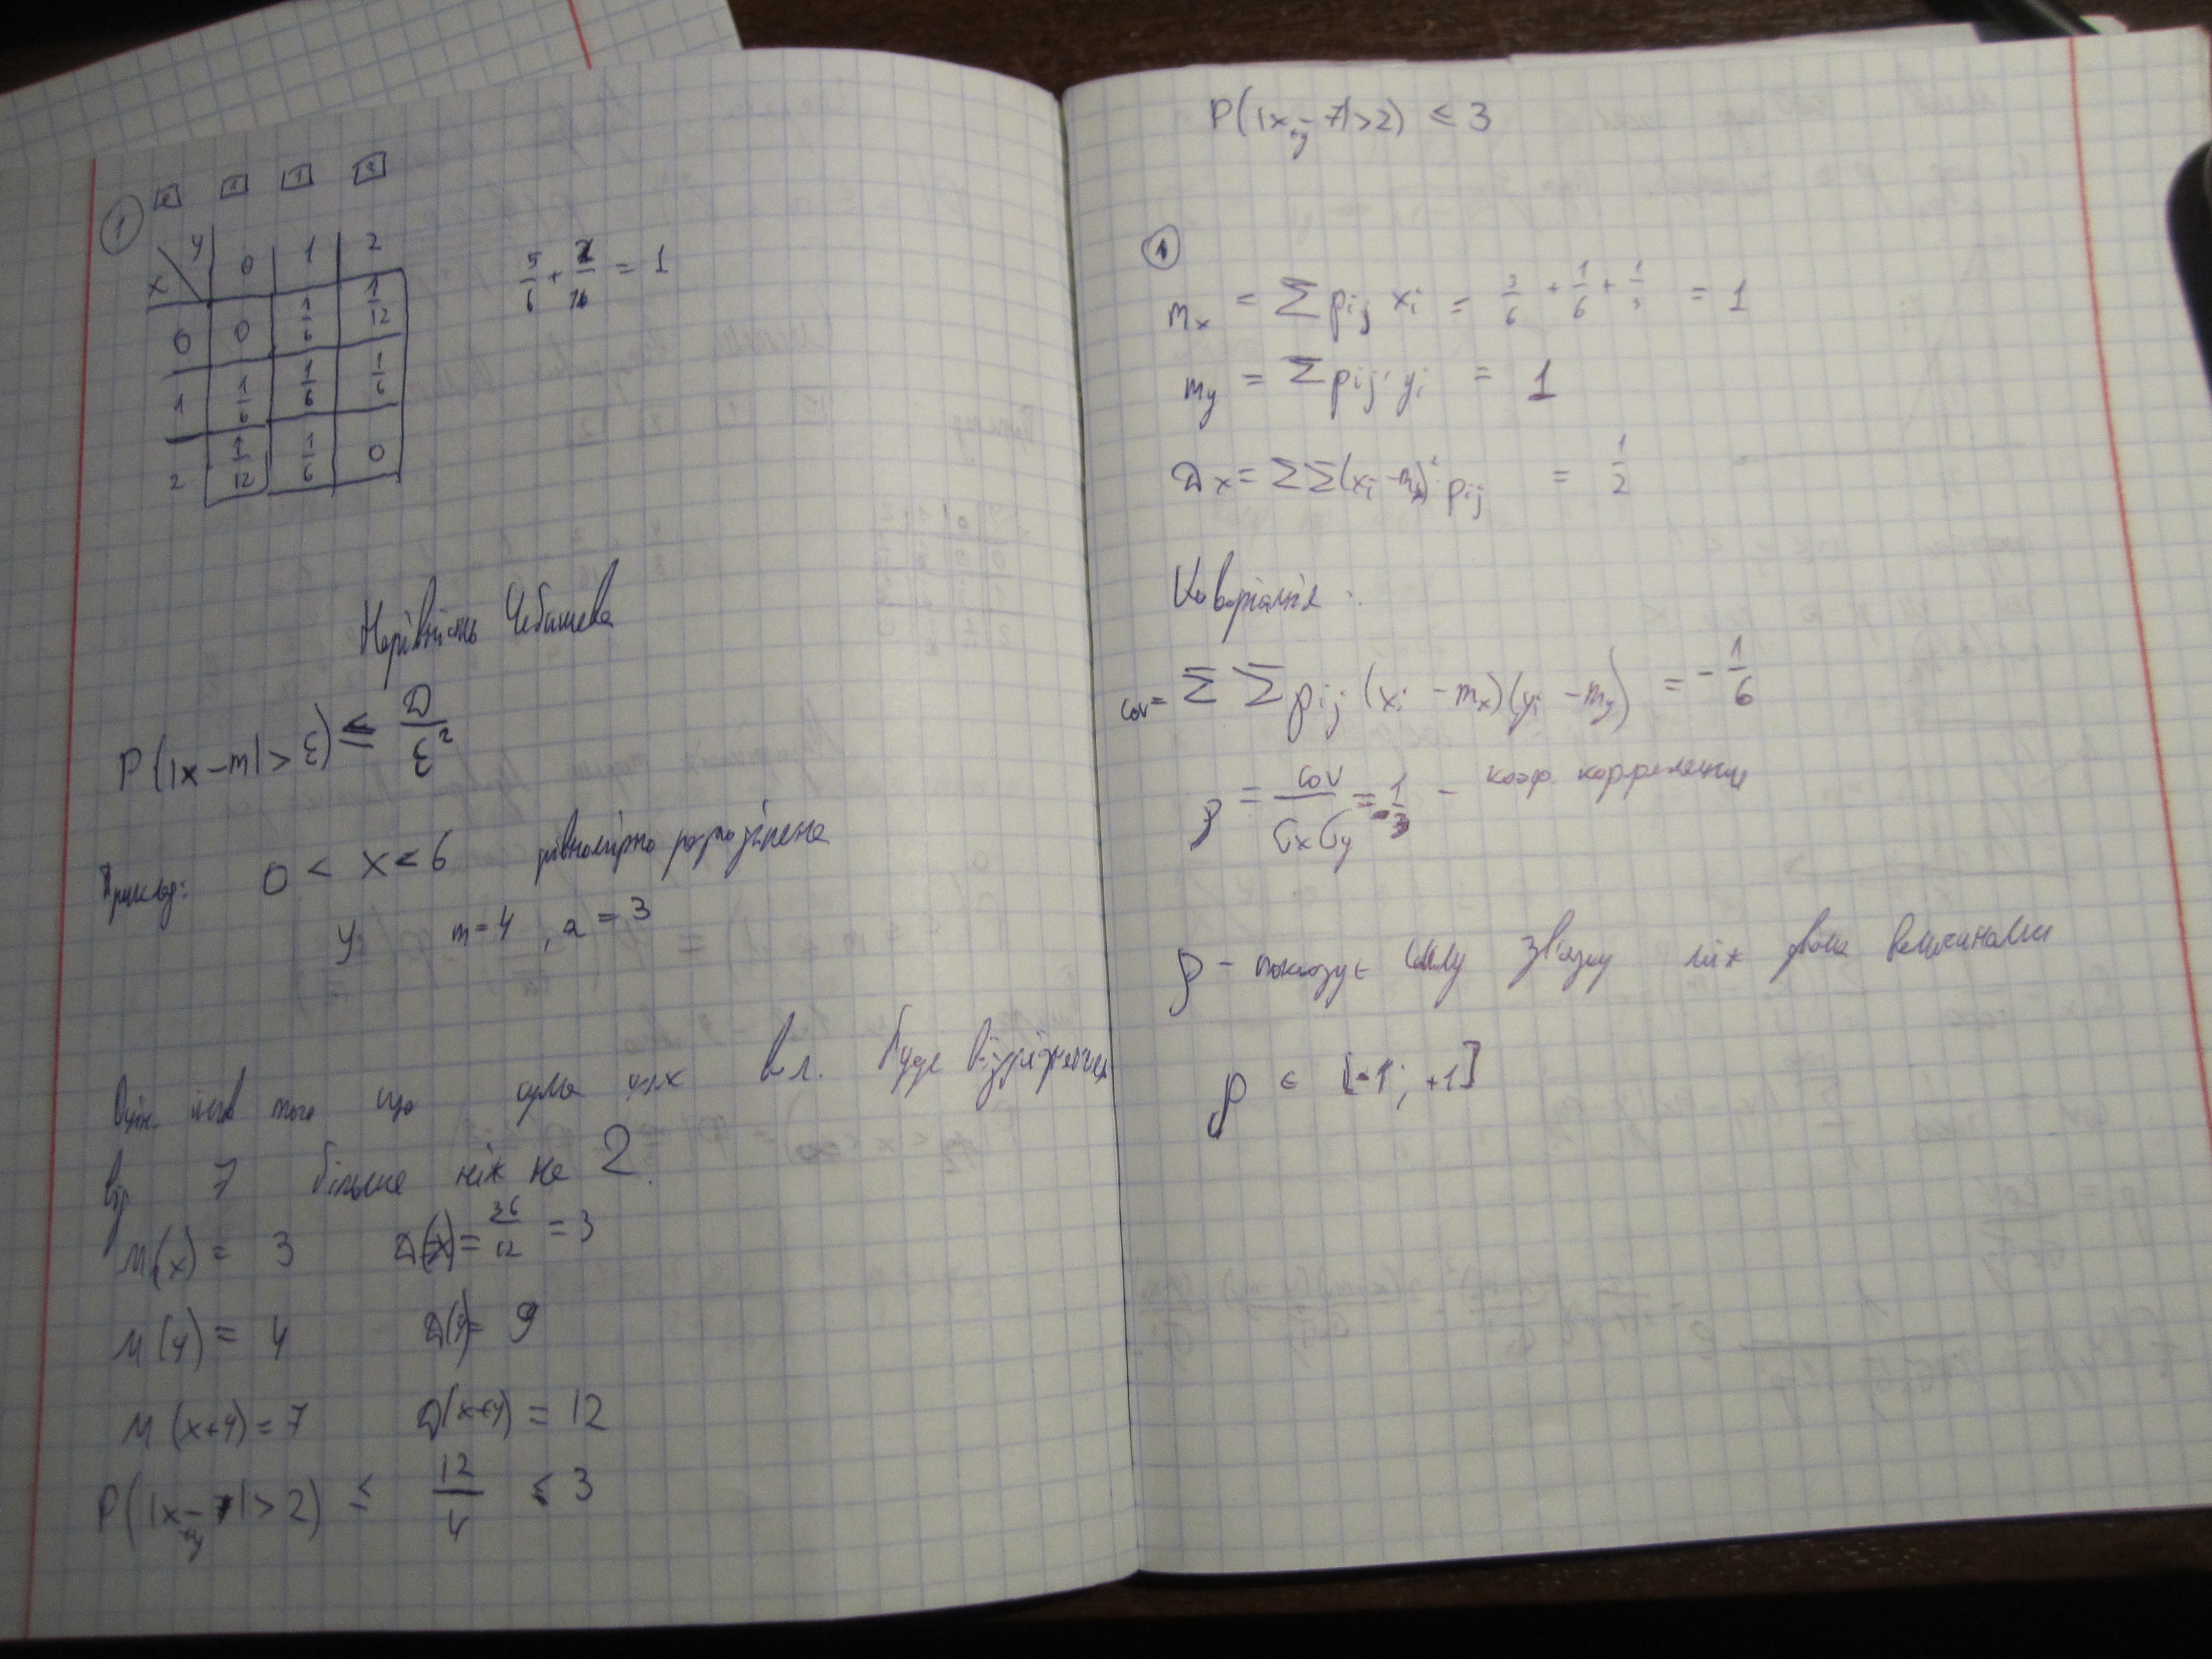 ① 0 1 1 2
x \ y 0 1 2
0 0 1/6 1/12
1 1/6 1/6 1/6
2 1/12 1/6 0
5/6 + 2/12 = 1
Нерівність Чебишева
P(|x-m| > ε) ≤ D/ε²
Приклад: 0 < x < 6 рівномірно розподілена
y m=4, σ=3
того що сума цих в.в. буде відрізнятися
від 7 більше ніж на 2.
M(x) = 3 D(x) = 36/12 = 3
M(y) = 4 D(y) = 9
M(x+y) = 7 D(x+y) = 12
P(|x+y - 7| > 2) ≤ 12/4 ≤ 3
P(|x+y - 7| > 2) ≤ 3
①
mx = Σ pij xi = 3/6 + 1/6 + 1/3 = 1
my = Σ pij yi = 1
Dx = ΣΣ(xi - mx)² pij = 1/2
Коваріація:
cov = Σ Σ pij (xi - mx)(yi - my) = - 1/6
ρ = cov/σxσy = -1/3 - коэф. корреляции
ρ - показує силу звязку між двома величинами
ρ ∈ [-1; +1]